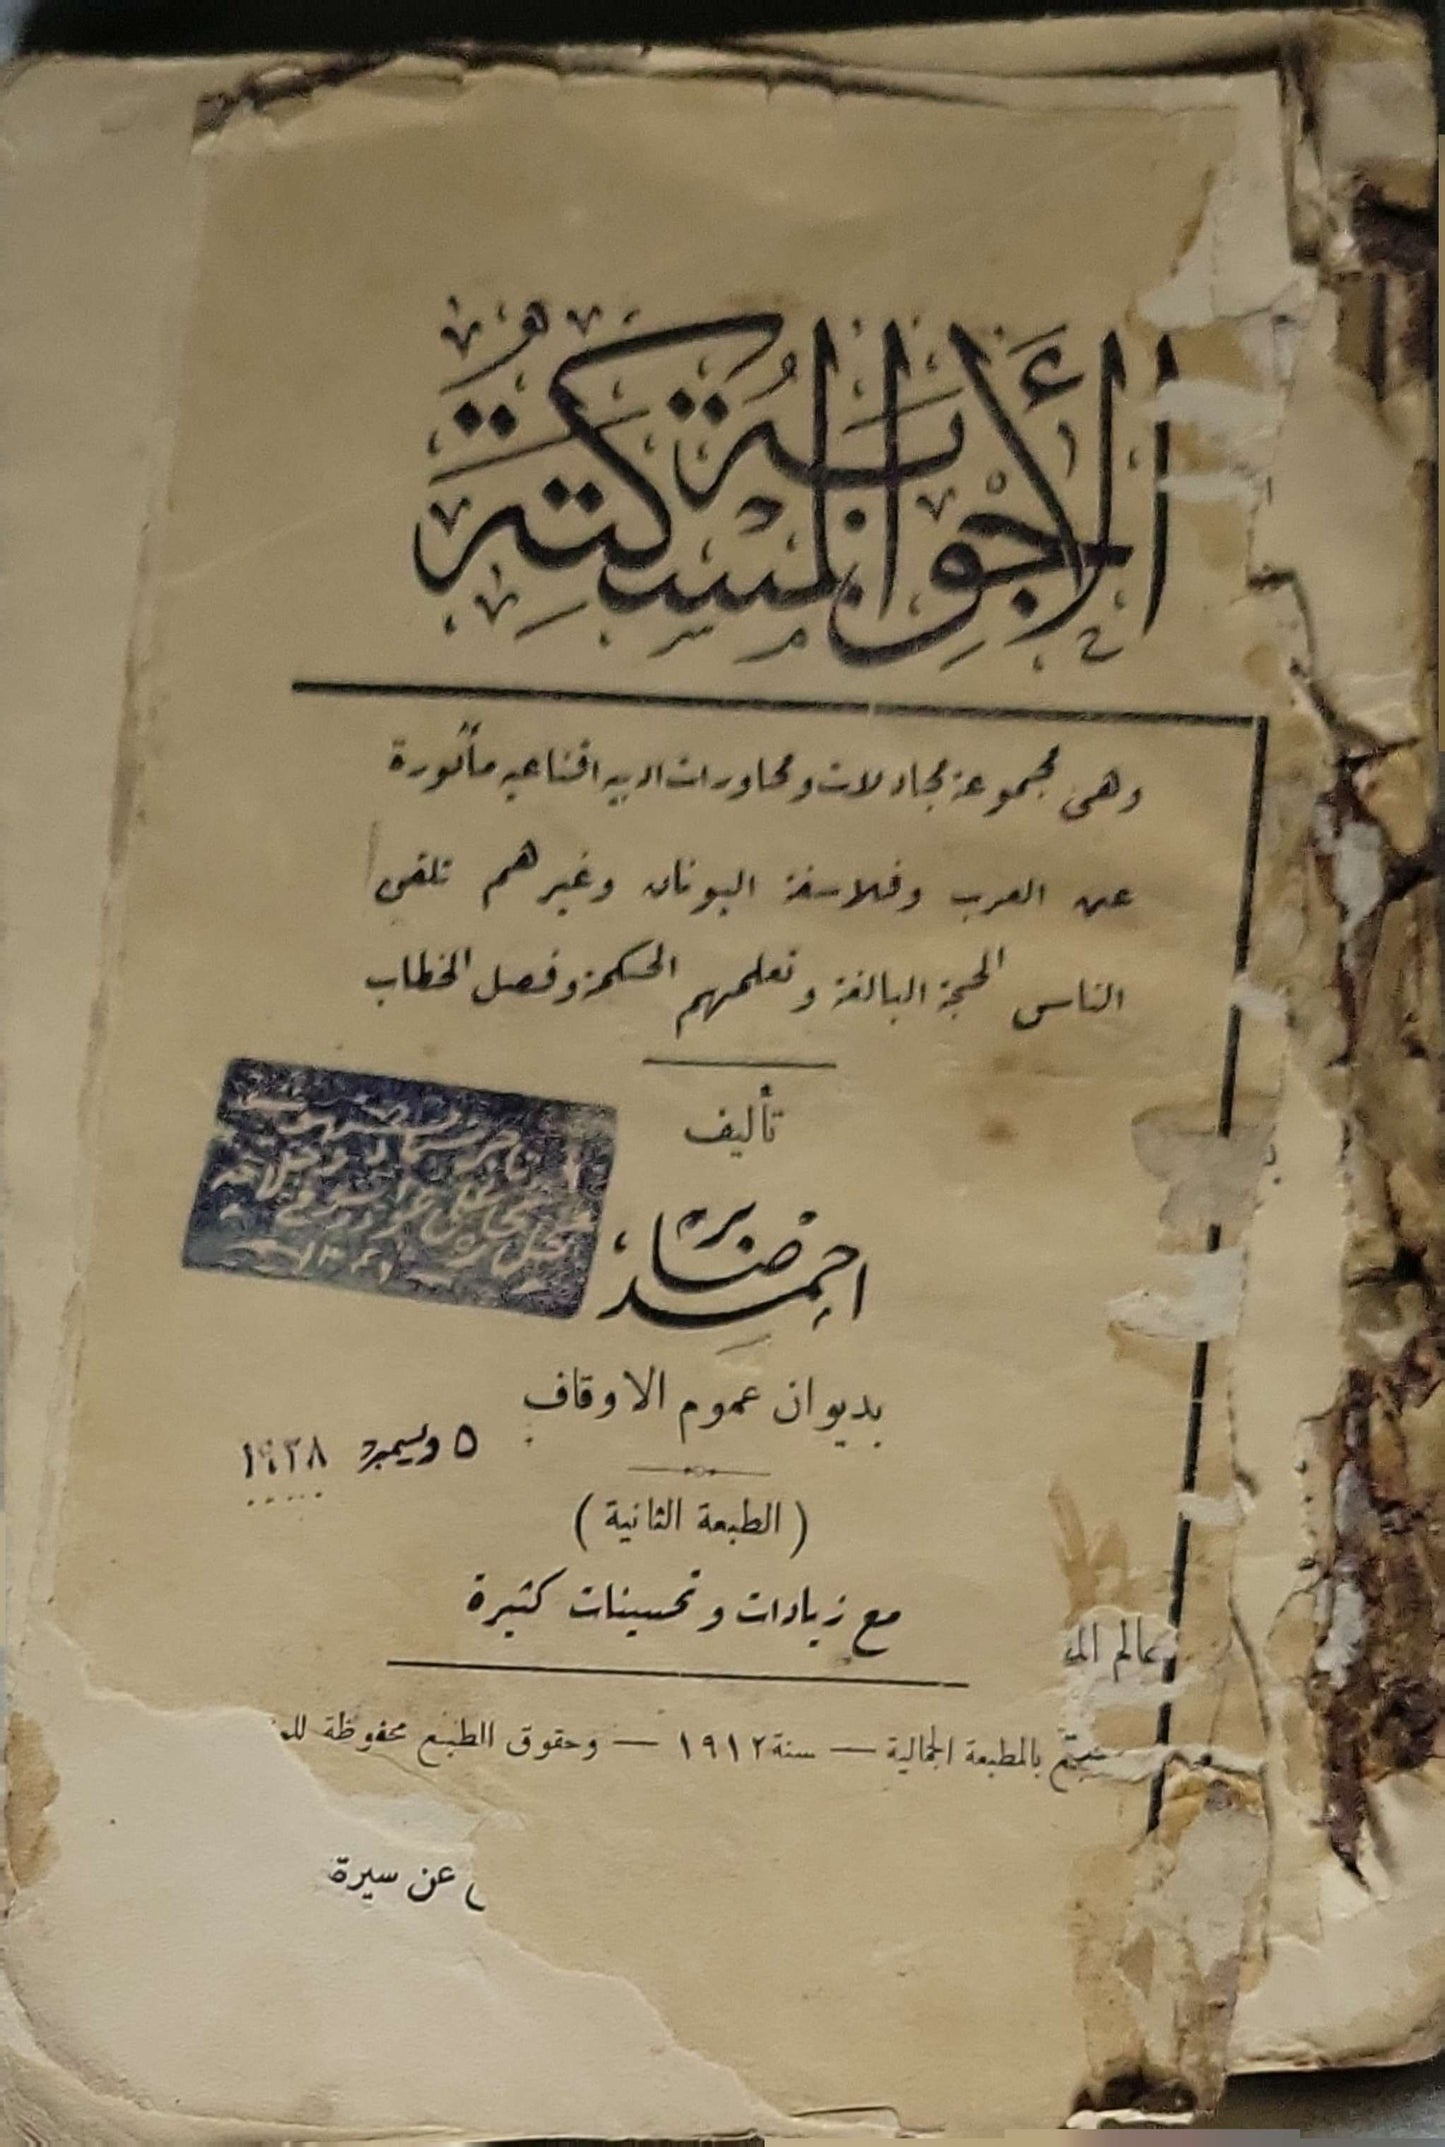 الأَجْوِبَةُ المُسْكِتَةُ
وهى مجموعة مجادلات ومحاورات ادبيه اقناعيه مأثورة
عن العرب وفلاسفة اليونان وغيرهم تلقى
الناس الحجة البالغة وتعلمهم الحكمة وفصل الخطاب
تأليف
احمد صابر
بديوان عموم الاوقاف
٥ ديسمبر ١٩٣٨
( الطبعة الثانية )
مع زيادات وتحسينات كثيرة
عالم
بالمطبعة الجمالية — سنة ١٩١٢ — وحقوق الطبع محفوظة
عن سيرة